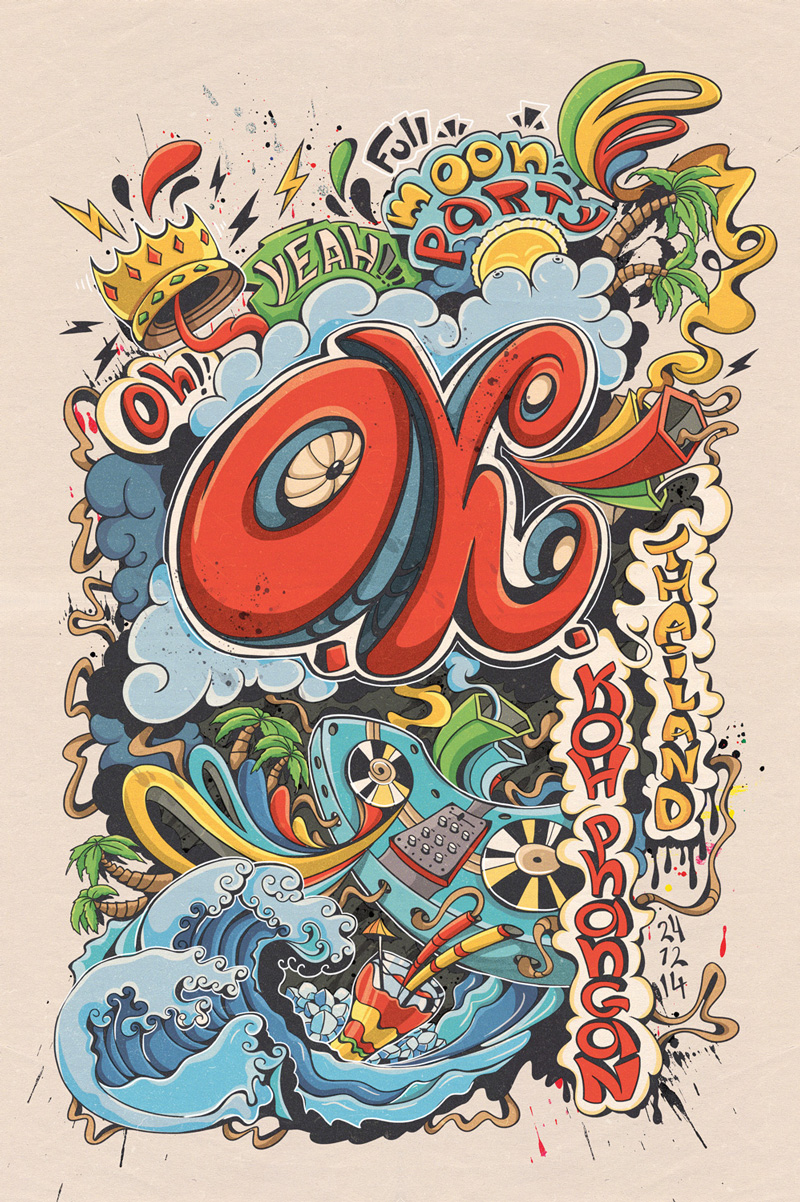 Full
moon
party
YEAH!!!
Oh!!
O.K.
THAILAND
KOH PhanGON
24
12
14